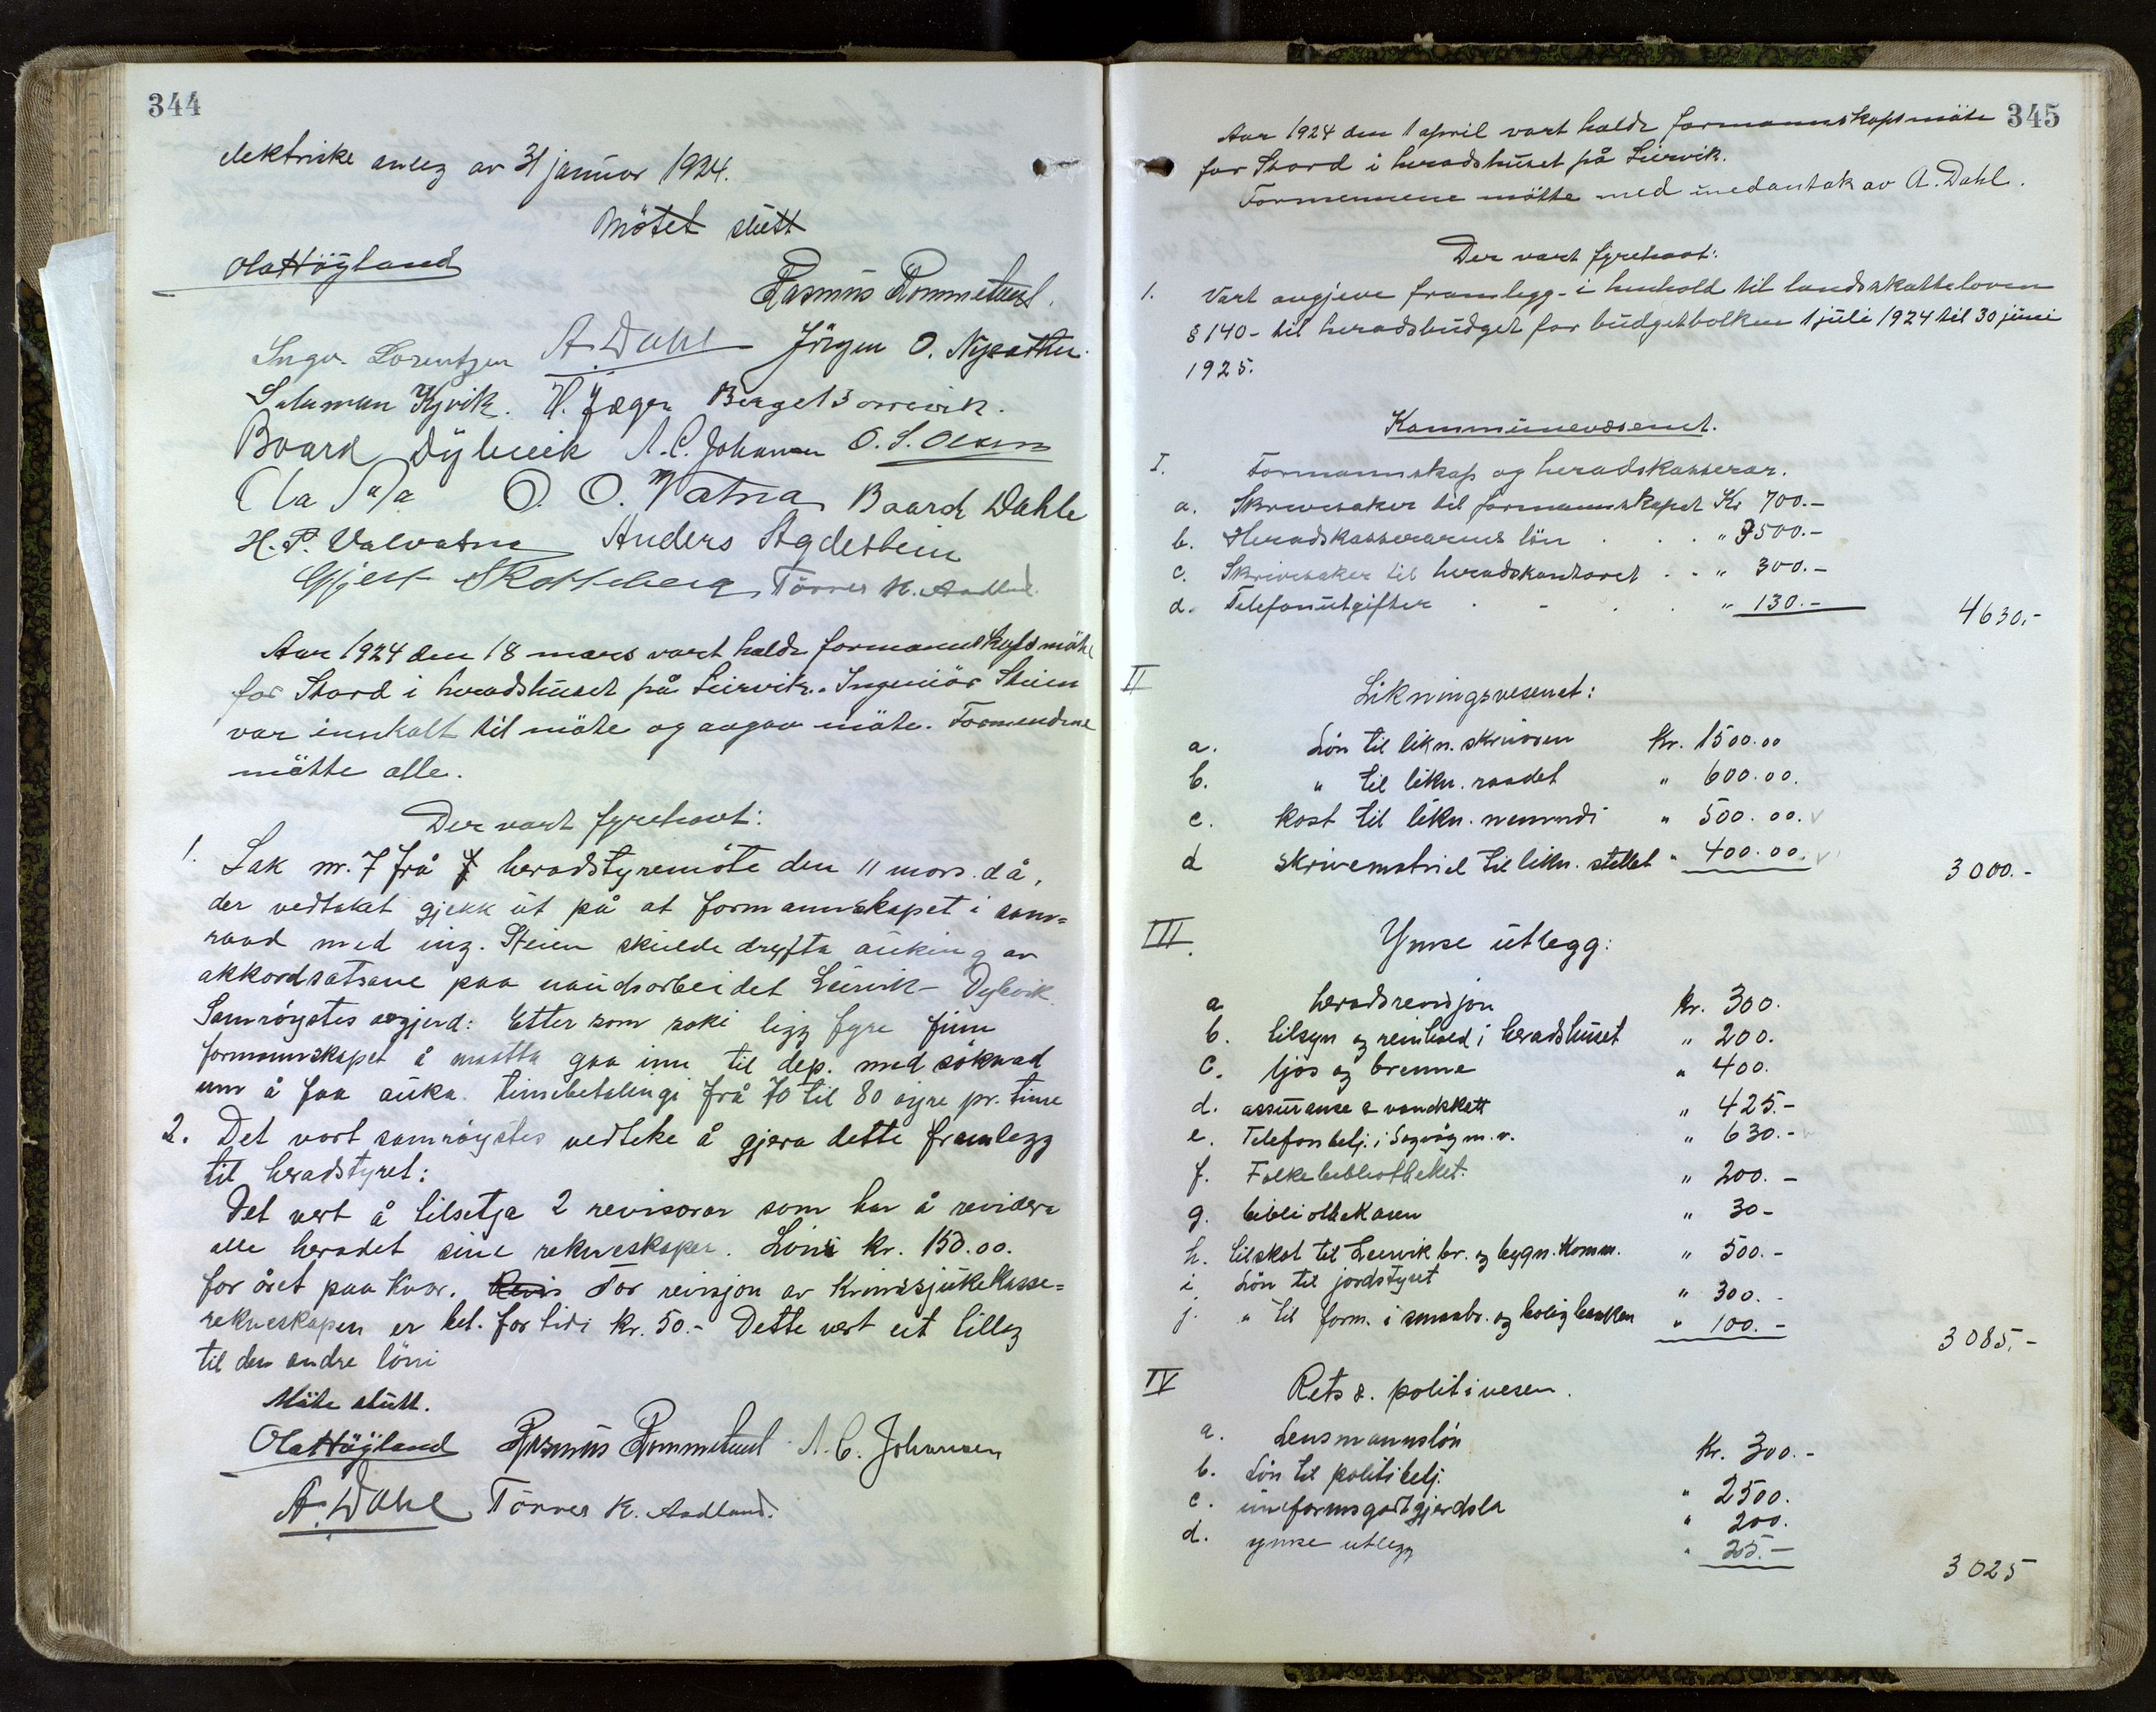 344
elektriske anleg av 31 januar 1924.
Mötet slutt
Ola Höyland
Rasmus Rommetveit.
Ingv. Lorentzen A. Dahl Jörgen O. Nysæther.
Salamon Kjvik. H. Jæger Berget Sørevik.
Baard Dybvik A. C. Johansen O. S. Olsen
Ola O. O. Vatna Baard Dahle
H. P. Valvatne Anders Agdestein
Gjert Skotteberg Törres K. Aadland.
Aar 1924 den 18 mars vart halde formannskapsmöte
for Stord i heradshuset på Leirvik. Ingeniör Steien
var innkalt til möte og avgav möte. Formendene
mötte alle.
Der vart fyrehavt:
1. Sak nr. 7 frå heradstyremöte den 11 mars då,
der vedtaket gjekk ut på at formannskapet i sam=
raad med ing. Steien skulde dryfta auking av
akkordsatsane paa naudsarbeidet Leirvik - Dybvik.
Samröystes avgjerd: Etter som saki ligg fyre finn
formannskapet å maatta gaa inn til dep. med söknad
um å faa auka timebetalingi frå 70 til 80 öyre pr. time
2. Det vart samröystes vedteke å gjera dette framlegg
til heradstyret:
Det vert å tilsetja 2 revisorar som har å revidera
alle heradet sine rekneskaper. Löni kr. 150.00.
for året paa kvar. Revis For revisjon av Krinssjukekasse=
rekneskapen er bet. for tidi kr. 50.- Dette vert eit tillegg
til den andre löni
Möte slutt.
Ola Höyland Rasmus Rommetveit A. C. Johansen
A. Dahl Törres K. Aadland.
345
Aar 1924 den 1 april vart halde formannskapsmöte
for Stord i heradshuset på Leirvik.
Formennene mötte med undantak av A. Dahl.
Der vart fyrehavt:
1. Vart avgjeve framlegg - i henhold til landsskatteloven
§ 140 - til heradsbudget for budgetbolken 1 juli 1924 til 30 juni
1925.
Kommunevæsenet.
I. Formannskap og heradskasserar.
a. Skrivesaker til formannskapet Kr 700.-
b. Heradskasserarens lön . . . " 3500.-
c. Skrivesaker til heradskontoret . . " 300.-
d. Telefonutgifter . - . . " 130.- 4630.-
II Likningsvesenet:
a. Lön til likn. skrivaren Kr. 1500.00
b. " til likn. raadet " 600.00.
c. Kost til likn. nemndi " 500.00.
d Skrivematriel til likn. stellet " 400.00. 3000.-
III. Ymse utlegg:
a heradsrevisjon kr. 300.
b. tilsyn og reinhald i heradshuset " 200.
c. ljos og brenne " 400.
d. assuranse & vandskatt " 425.-
e. Telefonbelj. i Sagvåg m.v. " 630.-
f. Folkebibliotheket. " 200.-
g. bibliothekaren " 30-
h. tilskot til Leirvik br. og bygn. Komm. " 500.-
i Lön til jordstyret " 300.-
j. " til form. i smaabr. og boligbanken " 100.- 3085.-
IV Rets & politivesen.
a. Lensmannslön Kr. 300.-
b. Lön til politibelj. " 2500.
c. uniformsgodtgjerdsla " 200.
d. ymse utlegg " 25.- 3025